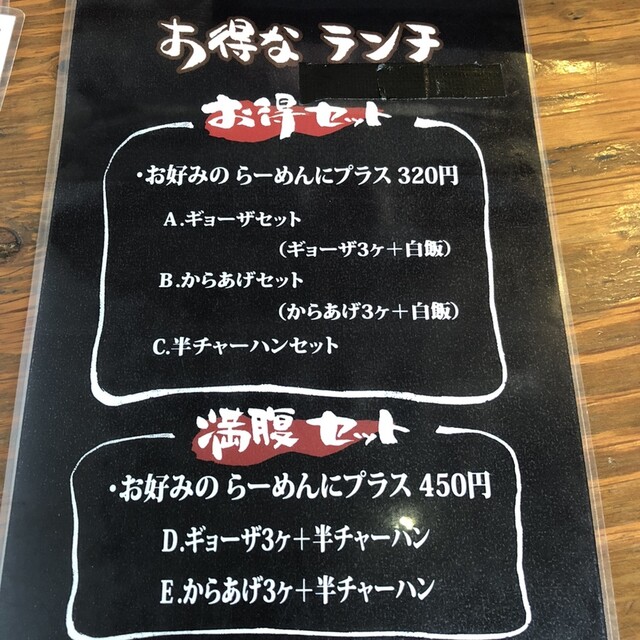 お得な ランチ
お得セット
・お好みの らーめんにプラス 320円
A.ギョーザセット
(ギョーザ3ヶ＋白飯)
B.からあげセット
(からあげ3ヶ＋白飯)
C.半チャーハンセット
満腹 セット
・お好みの らーめんにプラス 450円
D.ギョーザ3ヶ＋半チャーハン
E.からあげ3ヶ＋半チャーハン